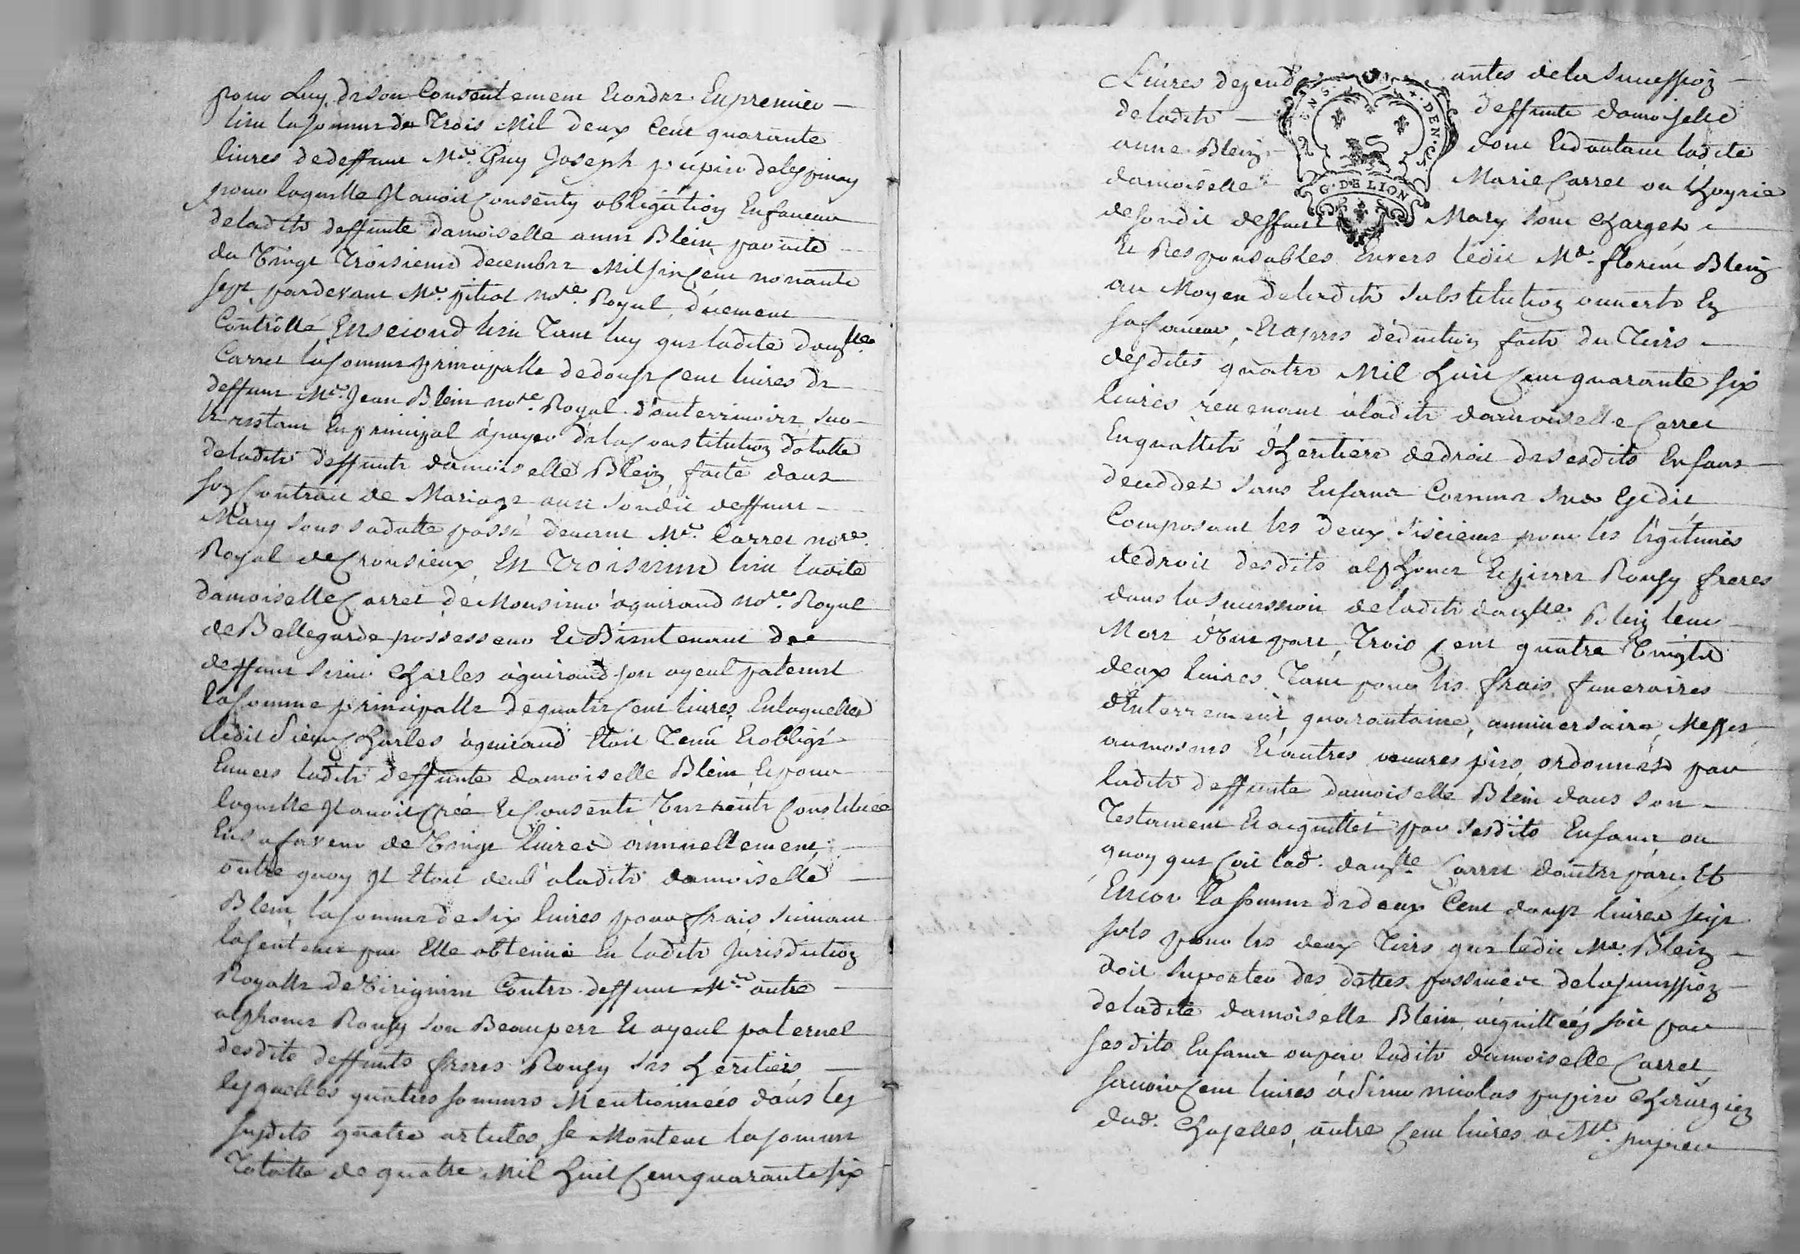 pour Luy de son Consentement Et ordre En premier
lieu la somme de Trois Mil deux Cent quarante
livres de deffunt Mre. Guy Joseph pupier delespinay
pour laquelle Il avoit Consenty obligation En faveur
de ladite deffunte damoiselle anne Blein par acte
du vingt Troisieme decembre Mil six Cent nonante
sept pardevant Me. pitiot notre. Royal, duement
Controllé, En second lieu Tant luy que ladite damslle.
Carret la somme principalle de douze Cent livres de
deffunt Me. Jean Blein notre. Royal d'anterrinoire, pour
le restant En principal à payer de la Constitution dotalle
de ladite deffunte damoiselle Blein faite dans
son Contrat de Mariage avec sondit deffunt
Mary sous sa datte passé devant Me. Carret notre.
Royal de Crousieux, En Troisieme lieu ladite
damoiselle Carret de Monsieur aguiraud notre. Royal
de Bellegarde possesseur Et Bientenant de
deffunt sieur Charles aguiraud son ayeul paternel
la somme principalle de quatre Cent livres, En laquelle
ledit sieur Charles aguiraud Etoit Tenu Et obligé
Envers ladite deffunte damoiselle Blein Et pour
laquelle Il avoit Créé Et Consenti Une rente Constituée
En sa faveur de Vingt livres annuellement,
outre quoy Il Etoit deub a ladite damoiselle
Blein la somme de six livres pour frais suivant
la sentence par Elle obtenue En ladite Jurisdiction
Royalle de Virignieu Contre deffunt Mre. autre
alphonce Rousy son Beaupere Et ayeul paternel
desdits deffunts freres Rousy ses heritiers
lesquelles quatre sommes Mentionnées dans les
susdits quatre articles, se Montent la somme
Totalle de quatre Mil huit Cent quarante six
Livres dependantes de la succession
de ladite deffunte damoiselle
anne Blein dont Et d'autant ladite
damoiselle Marie Carret ou l'hoyrie
de sondit deffunt Mary sont Chargés
Et Responsables Envers ledit Me. florent Blein
au Moyen de ladite substitution ouverte En
sa faveur, Et apres déduction faite du Tiers
desdites quatre Mil huit Cent quarante six
livres revenant à ladite damoiselle Carret
En quallité d'heritiere de droit de sesdits Enfans
deceddés sans Enfans Comme sus Est dit
Composant les deux sixiemes pour les légitimes
de droit desdits alphonce Et pierre Rousy freres
dans la succession de ladite damslle. Blein leur
Mere d'Une part, Trois Cent quatre Vingts
deux livres Tant pour les frais funeraires
d'Enterrement quarantaine, anniversaire, Messes,
aumosnes Et autres oeuvres pies, ordonnés par
ladite deffunte damoiselle Blein dans son
Testament Et acquittés par sesdits Enfans ou
quoy que soit lad. damslle. Carret d'autre part Et
Encor la somme de deux Cent douze livres seize
sols pour les deux Tiers que ledit Me. Blein
doit suporter des dettes passives de la succession
de ladite damoiselle Blein aquittées soit par
sesdits Enfans ou par ladite damoiselle Carret
scavoir Cent livres à sieur nicolas pupier Chirurgien
dud. Chaselles, autre Cent livres a Me. pupier